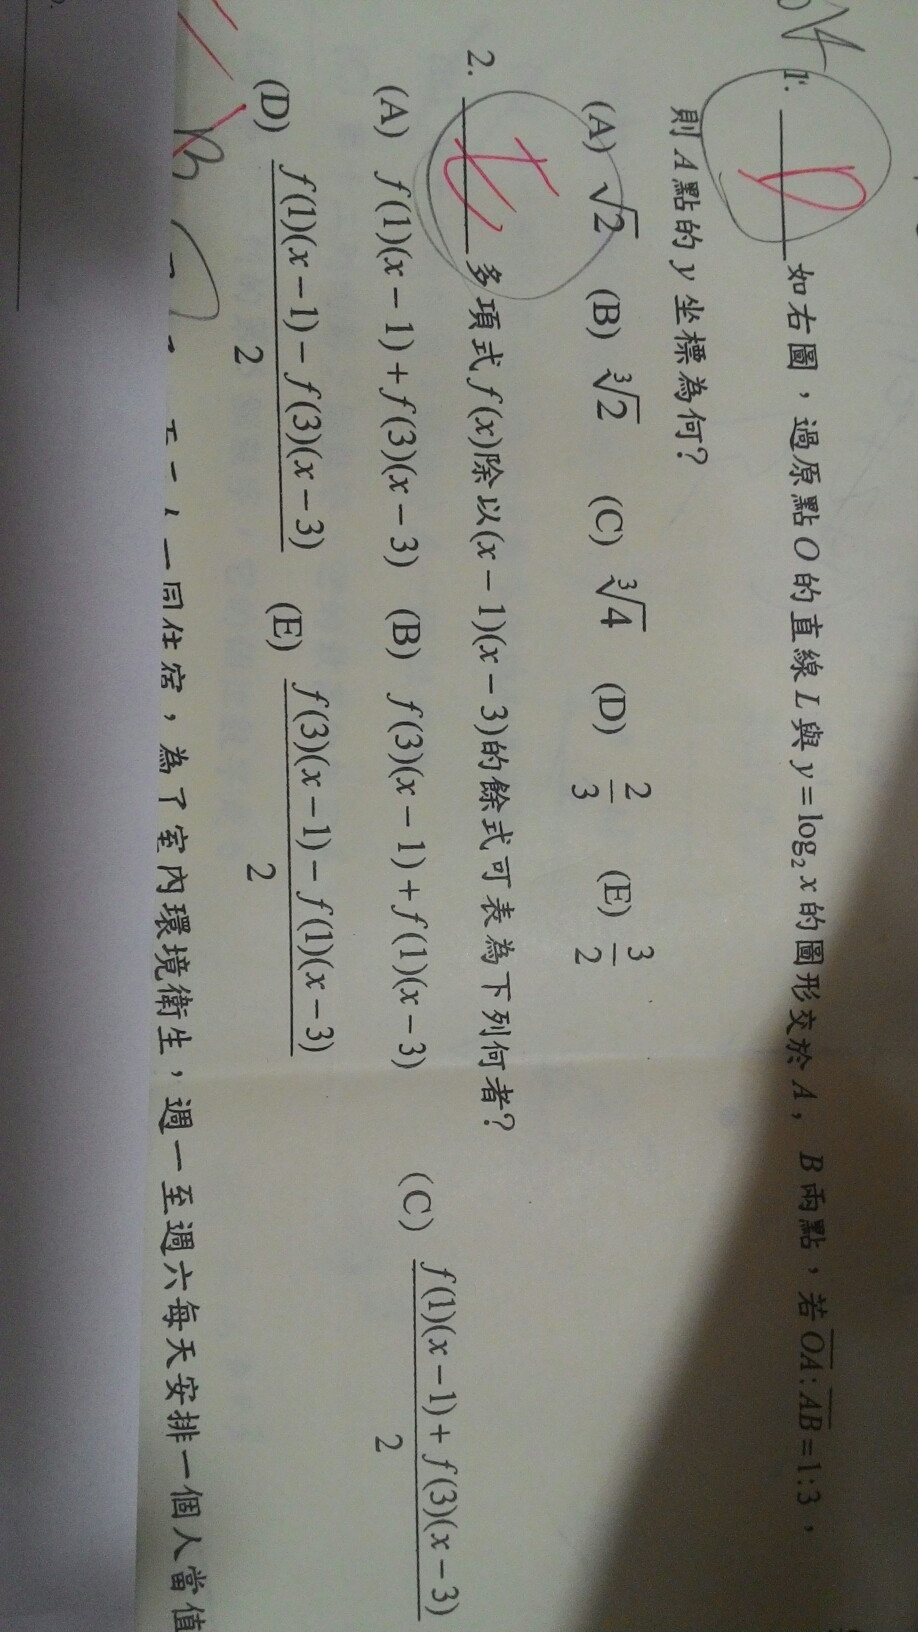 1. D 如右圖，過原點O的直線L與y=log₂x的圖形交於A，B兩點，若OA:AB=1:3，
則A點的y坐標為何？
(A) √2 (B) ∛2 (C) ∛4 (D) 2/3 (E) 3/2
2. E 多項式f(x)除以(x−1)(x−3)的餘式可表為下列何者？
(A) f(1)(x−1)+f(3)(x−3) (B) f(3)(x−1)+f(1)(x−3) (C) f(1)(x−1)+f(3)(x−3)/2
(D) f(1)(x−1)−f(3)(x−3)/2 (E) f(3)(x−1)−f(1)(x−3)/2
B
一同住宿，為了室內環境衛生，週一至週六每天安排一個人當值